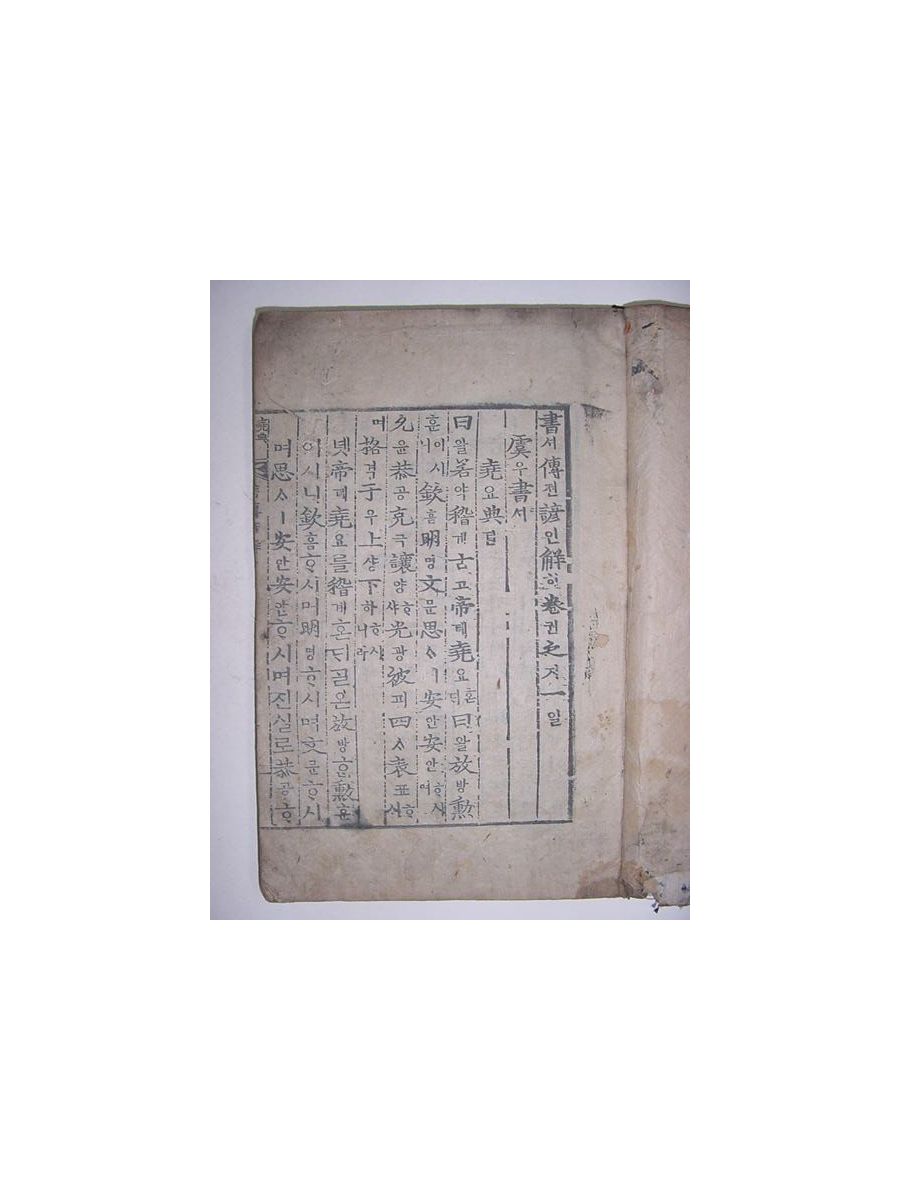 書셔傳젼諺언解ᄒᆡ卷권之지一일
虞우書셔
堯요典뎐
曰왈若약稽계古고帝뎨堯요ᄒᆞᆫᄃᆡ曰왈放방勲
훈이시니欽흠明명文문思ᄉᆞㅣ安안安안ᄒᆞ시며
允윤恭공克극讓양ᄒᆞ샤光광被피四ᄉᆞ表표ᄒᆞ시
며格격于우上샹下하ᄒᆞ시니라
녯帝뎨堯요를稽계혼ᄃᆡ ᄀᆞᆯ온放방ᄒᆞᆫ勲훈
이시니欽흠ᄒᆞ시며明명ᄒᆞ시며文문ᄒᆞ시
며思ᄉᆞㅣ安안安안ᄒᆞ시며진실로恭공ᄒᆞ
堯典